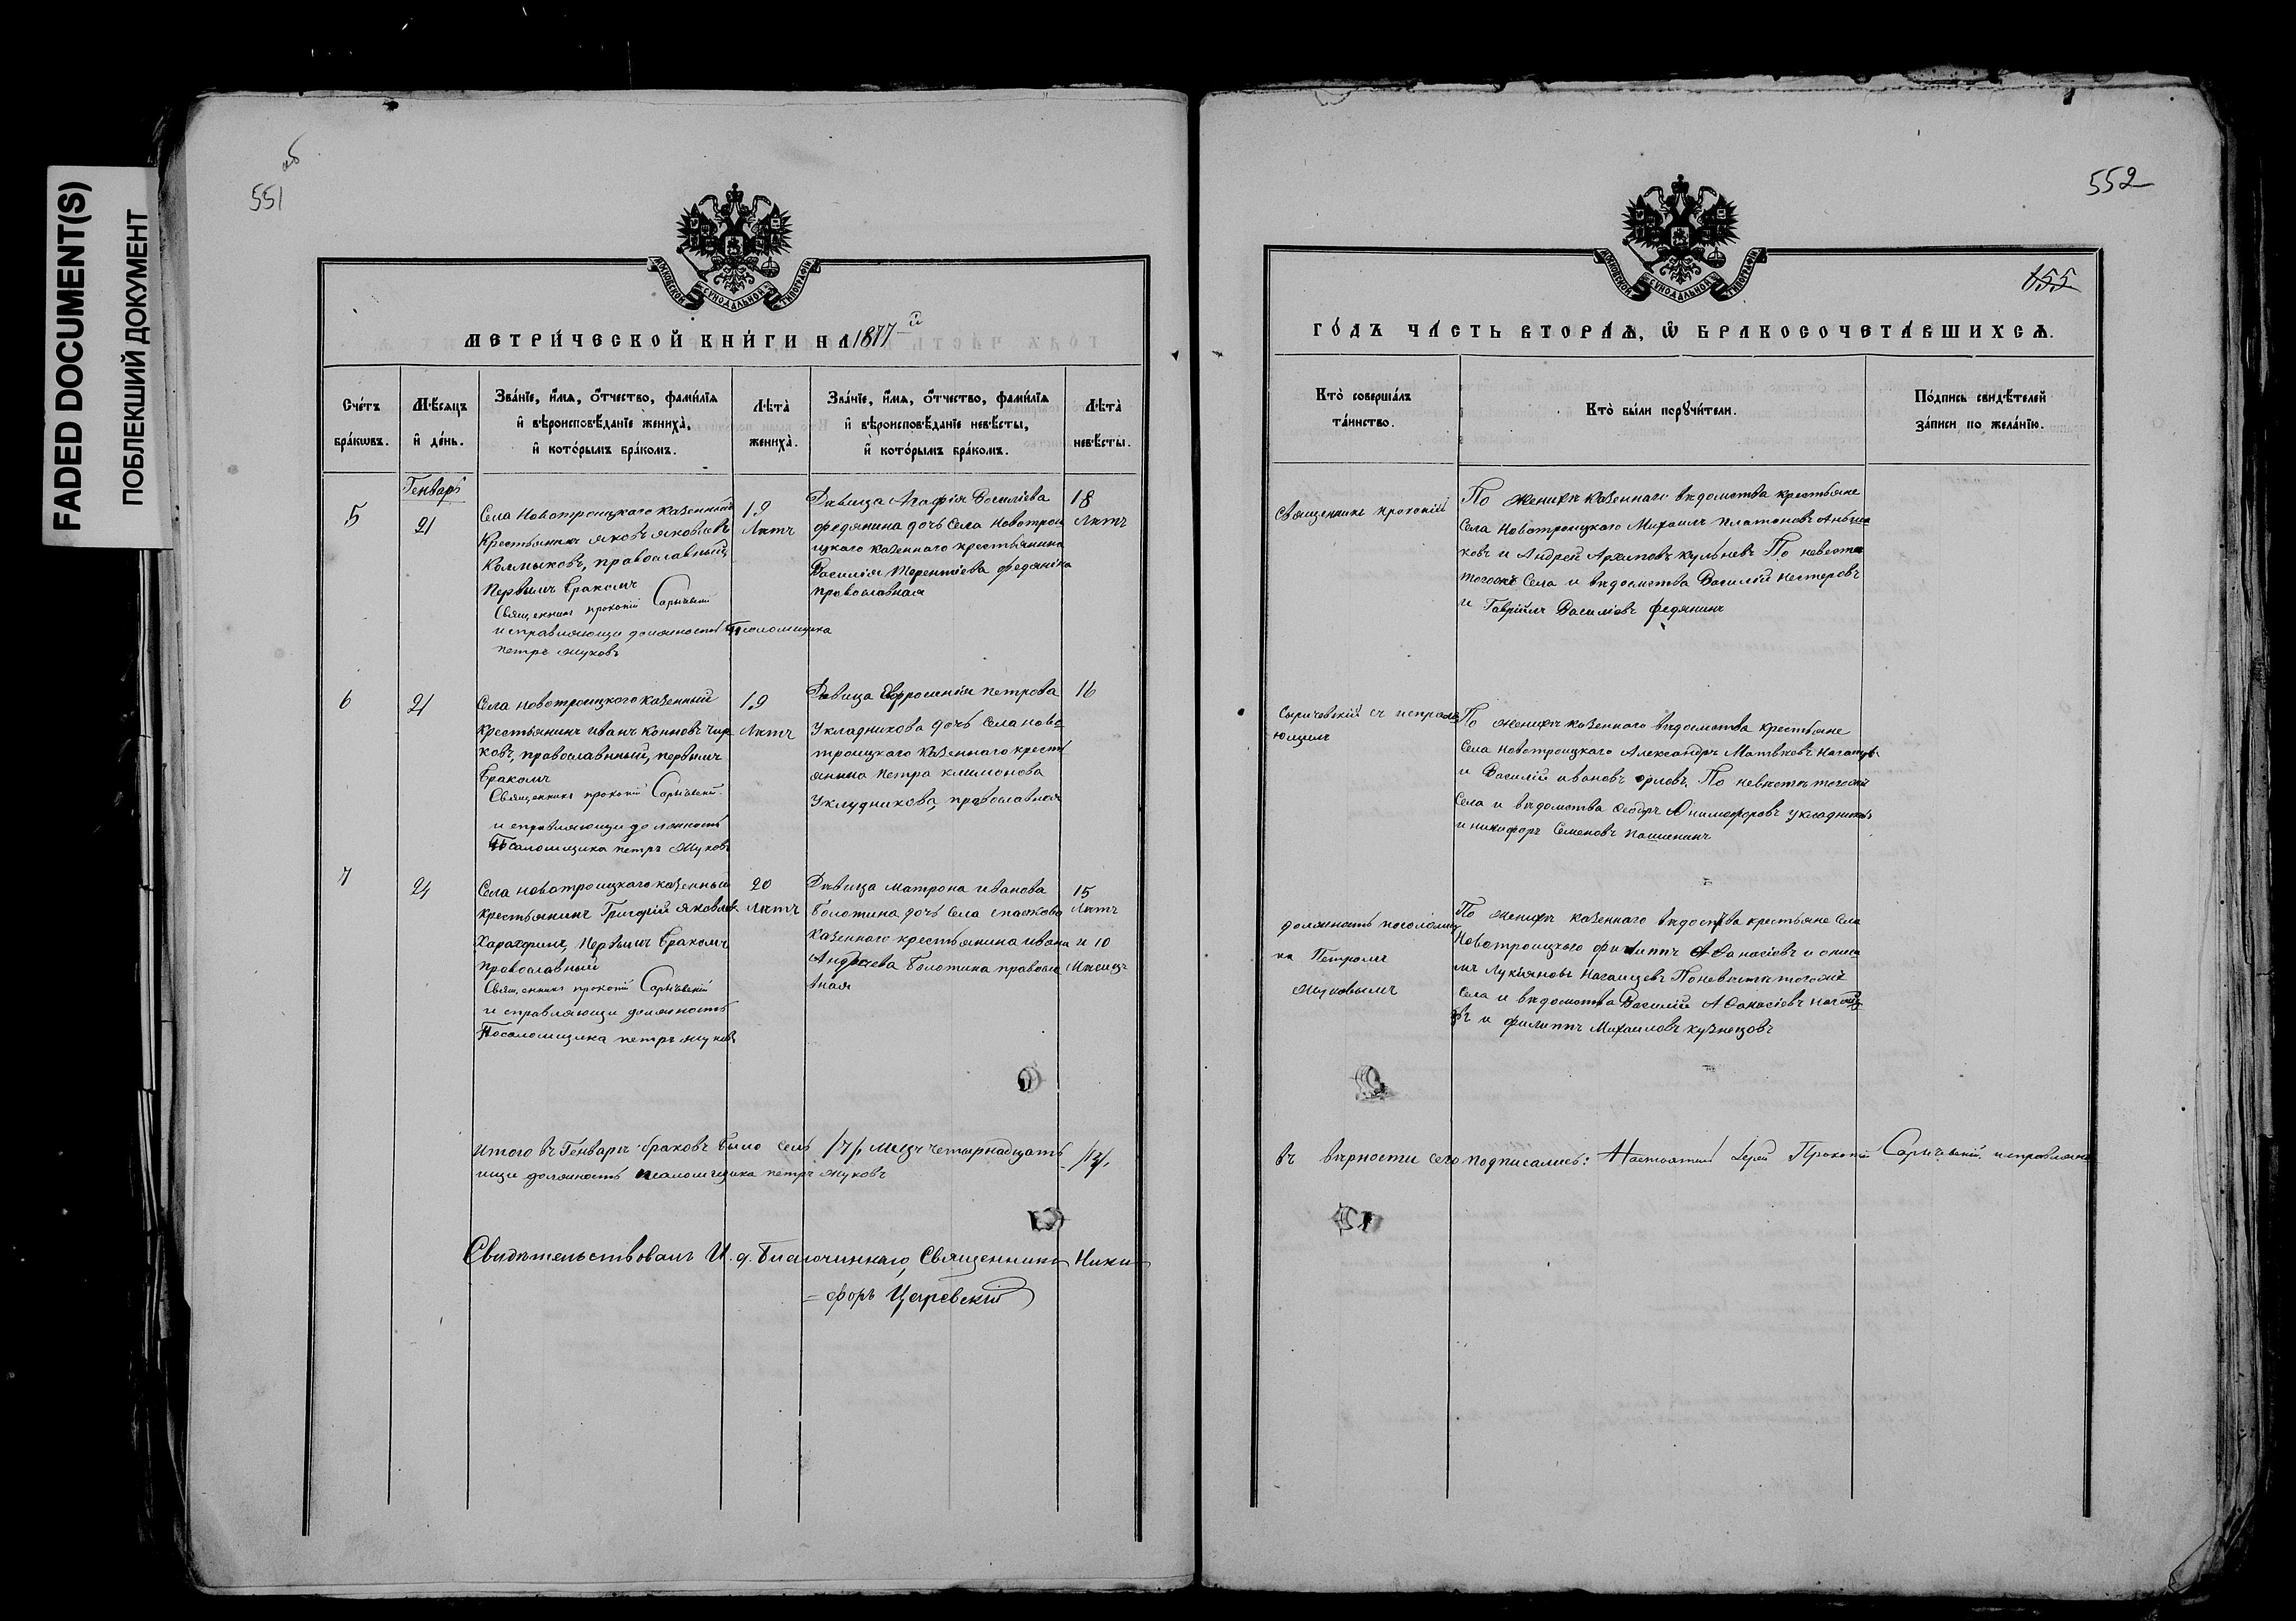 FADED DOCUMENT(S)
ПОБЛЕКШИЙ ДОКУМЕНТ
551 об
МОСКОВСКОЙ СУНОДАЛЬНОЙ ТИПОГРАФІИ
МЕТРИЧЕСКОЙ КНИГИ НА 1877-й
Счетъ браковъ.
Мѣсяцъ и день.
Званіе, имя, отчество, фамилія
и вѣроисповѣданіе жениха,
и которымъ бракомъ.
Лѣта
жениха.
Званіе, имя, отчество, фамилія
и вѣроисповѣданіе невѣсты,
и которымъ бракомъ.
Лѣта
невѣсты.
Генварь
5
21
Села Новотроицкаго казенный
Крестьянинъ яковъ яковлевъ
Калмыковъ, православный,
Первымъ бракомъ
Священникъ прокопій Сарычевскій
исправляющи должность Псоломщика
петръ жуковъ
19
Лѣтъ
Дѣвица Агафія Василіева
федянина дочь Села новотрои
цкаго казенного крестьянина
Василія Терентіева федянина
православная
18
Лѣтъ
6
21
Села новотроицкого казенный
крестьянинъ иванъ Коновъ чир
ковъ, православный, первымъ
бракомъ
Священникъ прокопій Сарычевскій
исправляющи должность
Псаломщика петръ жуковъ
19
Лѣтъ
Дѣвица Евфросинія петрова
Укладникова дочь Села ново
троицкаго казенного крестъ
янина петра климонова
Уклудникова, православная
16
7
24
Села новотроицкаго казенный
крестьянинъ Григорій яковлев
Харахоринъ, первымъ бракомъ
православный
Священникъ прокопій Сарычевскій
исправляющи должность
Посаломщика петръ жуковъ
20
Лѣтъ
Дѣвица матрона иванова
болотина дочь Села спасково
казенного крестьянина ивана
Андреева Болотина правосла
вная
15
Лѣтъ
и 10
Мѣсяцъ
Итого въ Генварѣ браковъ было семь /7/, лицъ четырнадцать /14/.
ющи должность псаломщика петръ жуковъ
Свидѣтельствовалъ И. д. Благочиннаго, Священникъ Ники
=форъ Царевскій
552
155
МОСКОВСКОЙ СУНОДАЛЬНОЙ ТИПОГРАФІИ
ГОДЪ ЧАСТЬ ВТОРАЯ, Ѡ БРАКОСОЧЕТАВШИХСЯ.
Кто совершалъ
таинство.
Кто были поручители.
Подпись свидѣтелей
записи по желанію.
Священникъ прокопій
По женихѣ казеннаго вѣдомства крестьяне
Села новотроицкаго Михаилъ платоновъ
и Андрей Архиповъ По невестѣ
тогоже Села и вѣдомства Василій нестеровъ
и Гавріилъ Василіовъ федянинъ
Сарычевскій съ исправля
ющимъ
По женихѣ казенного вѣдомства крестьяне
Села новотроицкаго Александръ Матвѣевъ
и Василій ивановъ орловъ. По невѣстѣ тогоже
Села и вѣдомства Ѳеодоръ укладниковъ
и никифоръ Семеновъ пашенинъ
должность посоломщ
ка Петромъ
Жуковымъ
По женихѣ казенного вѣдоства крестьяне Села
Новотроицкаго филиппъ Аѳанасіевъ и
Лукіяновъ Нагайцевъ По невестѣ тогоже
Села и вѣдомства Василій Аѳанасіевъ
и филиппъ Михаиловъ кузнецовъ
въ вѣрности сего подписались: Настоятель Іерей Прокопій Сарычевскій. исправляю